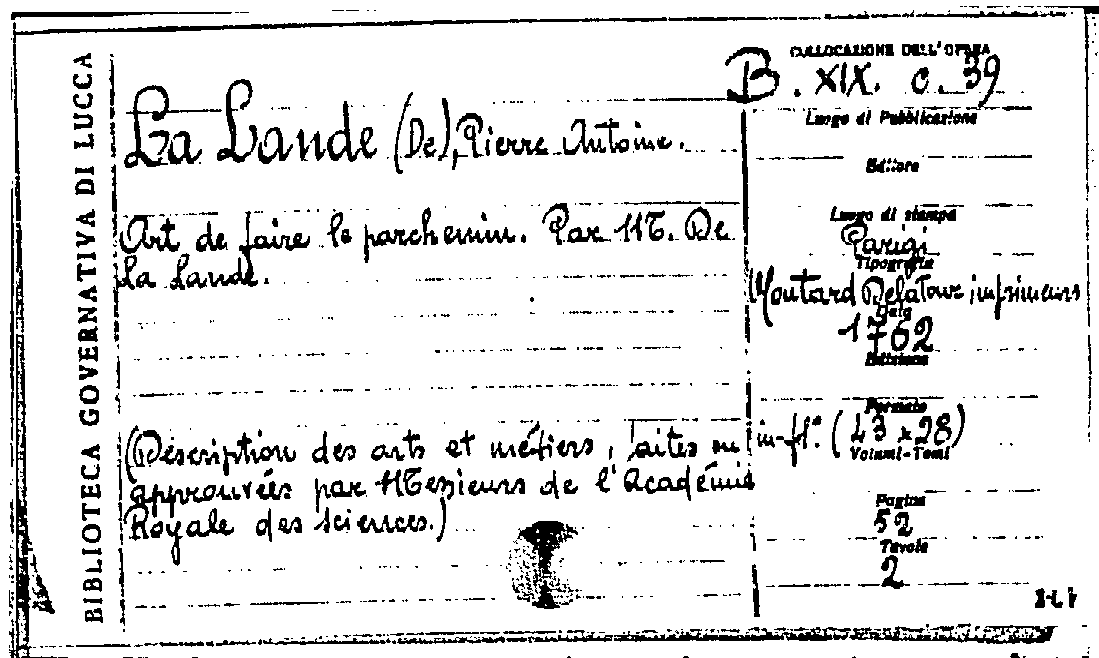 BIBLIOTECA GOVERNATIVA DI LUCCA
COLLOCAZIONE DELL'OPERA
B. XIX. c. 39
La Lande (De), Pierre Antoine.
Art de faire le parchemin. Par M. De
La Lande.
(Déscription des arts et métiers, faites ou
approuvées par Messieurs de l'Académie
Royale des Sciences.)
Luogo di Pubblicazione
Editore
Luogo di stampa
Parigi
Tipografia
Moutard Delatour imprimeurs
Data
1762
Edizione
Formato
in-fl.º (43 x 28)
Volumi-Tomi
Pagine
52
Tavole
2